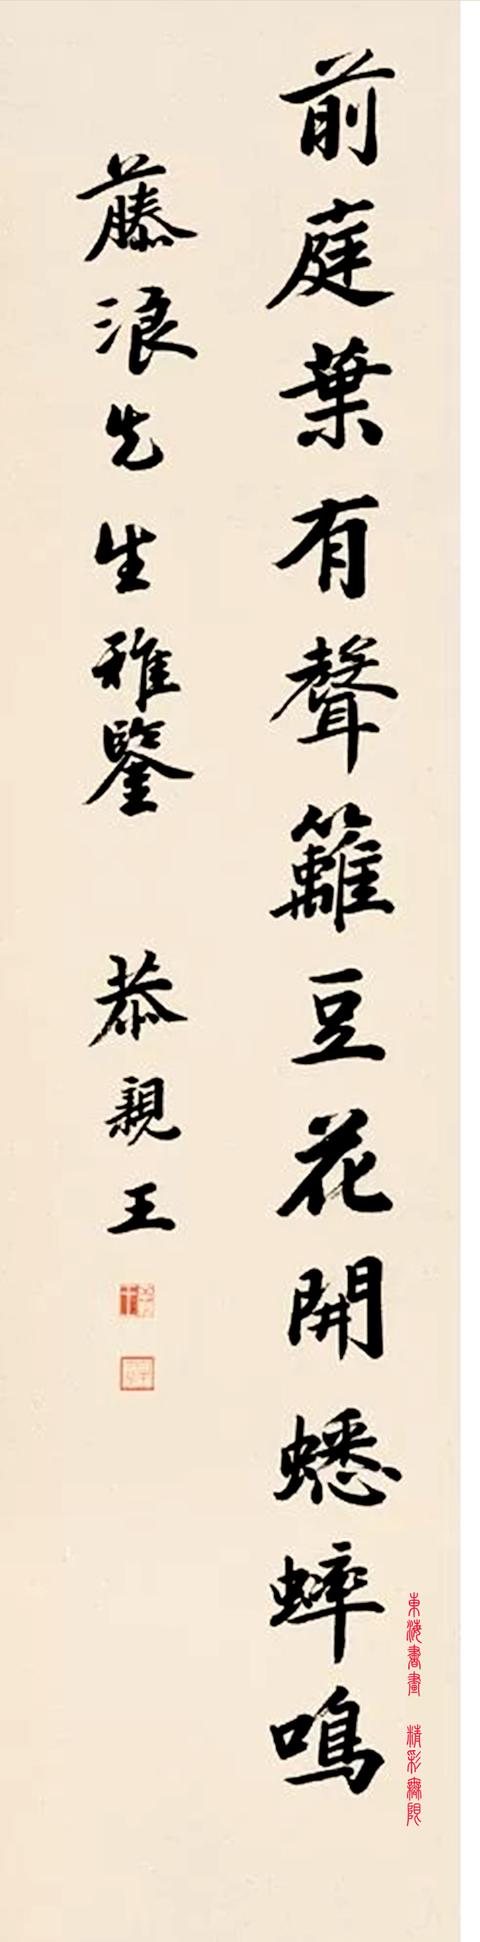 前庭葉有聲籬豆花開蟋蟀鳴
藤浪先生雅鑒 恭親王
東海書畫 精彩無限